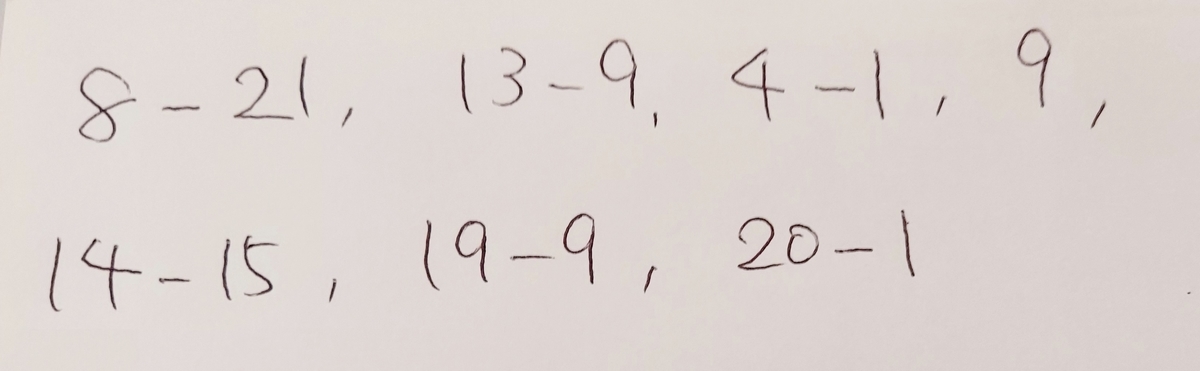 8-21, 13-9, 4-1, 9,
14-15, 19-9, 20-1